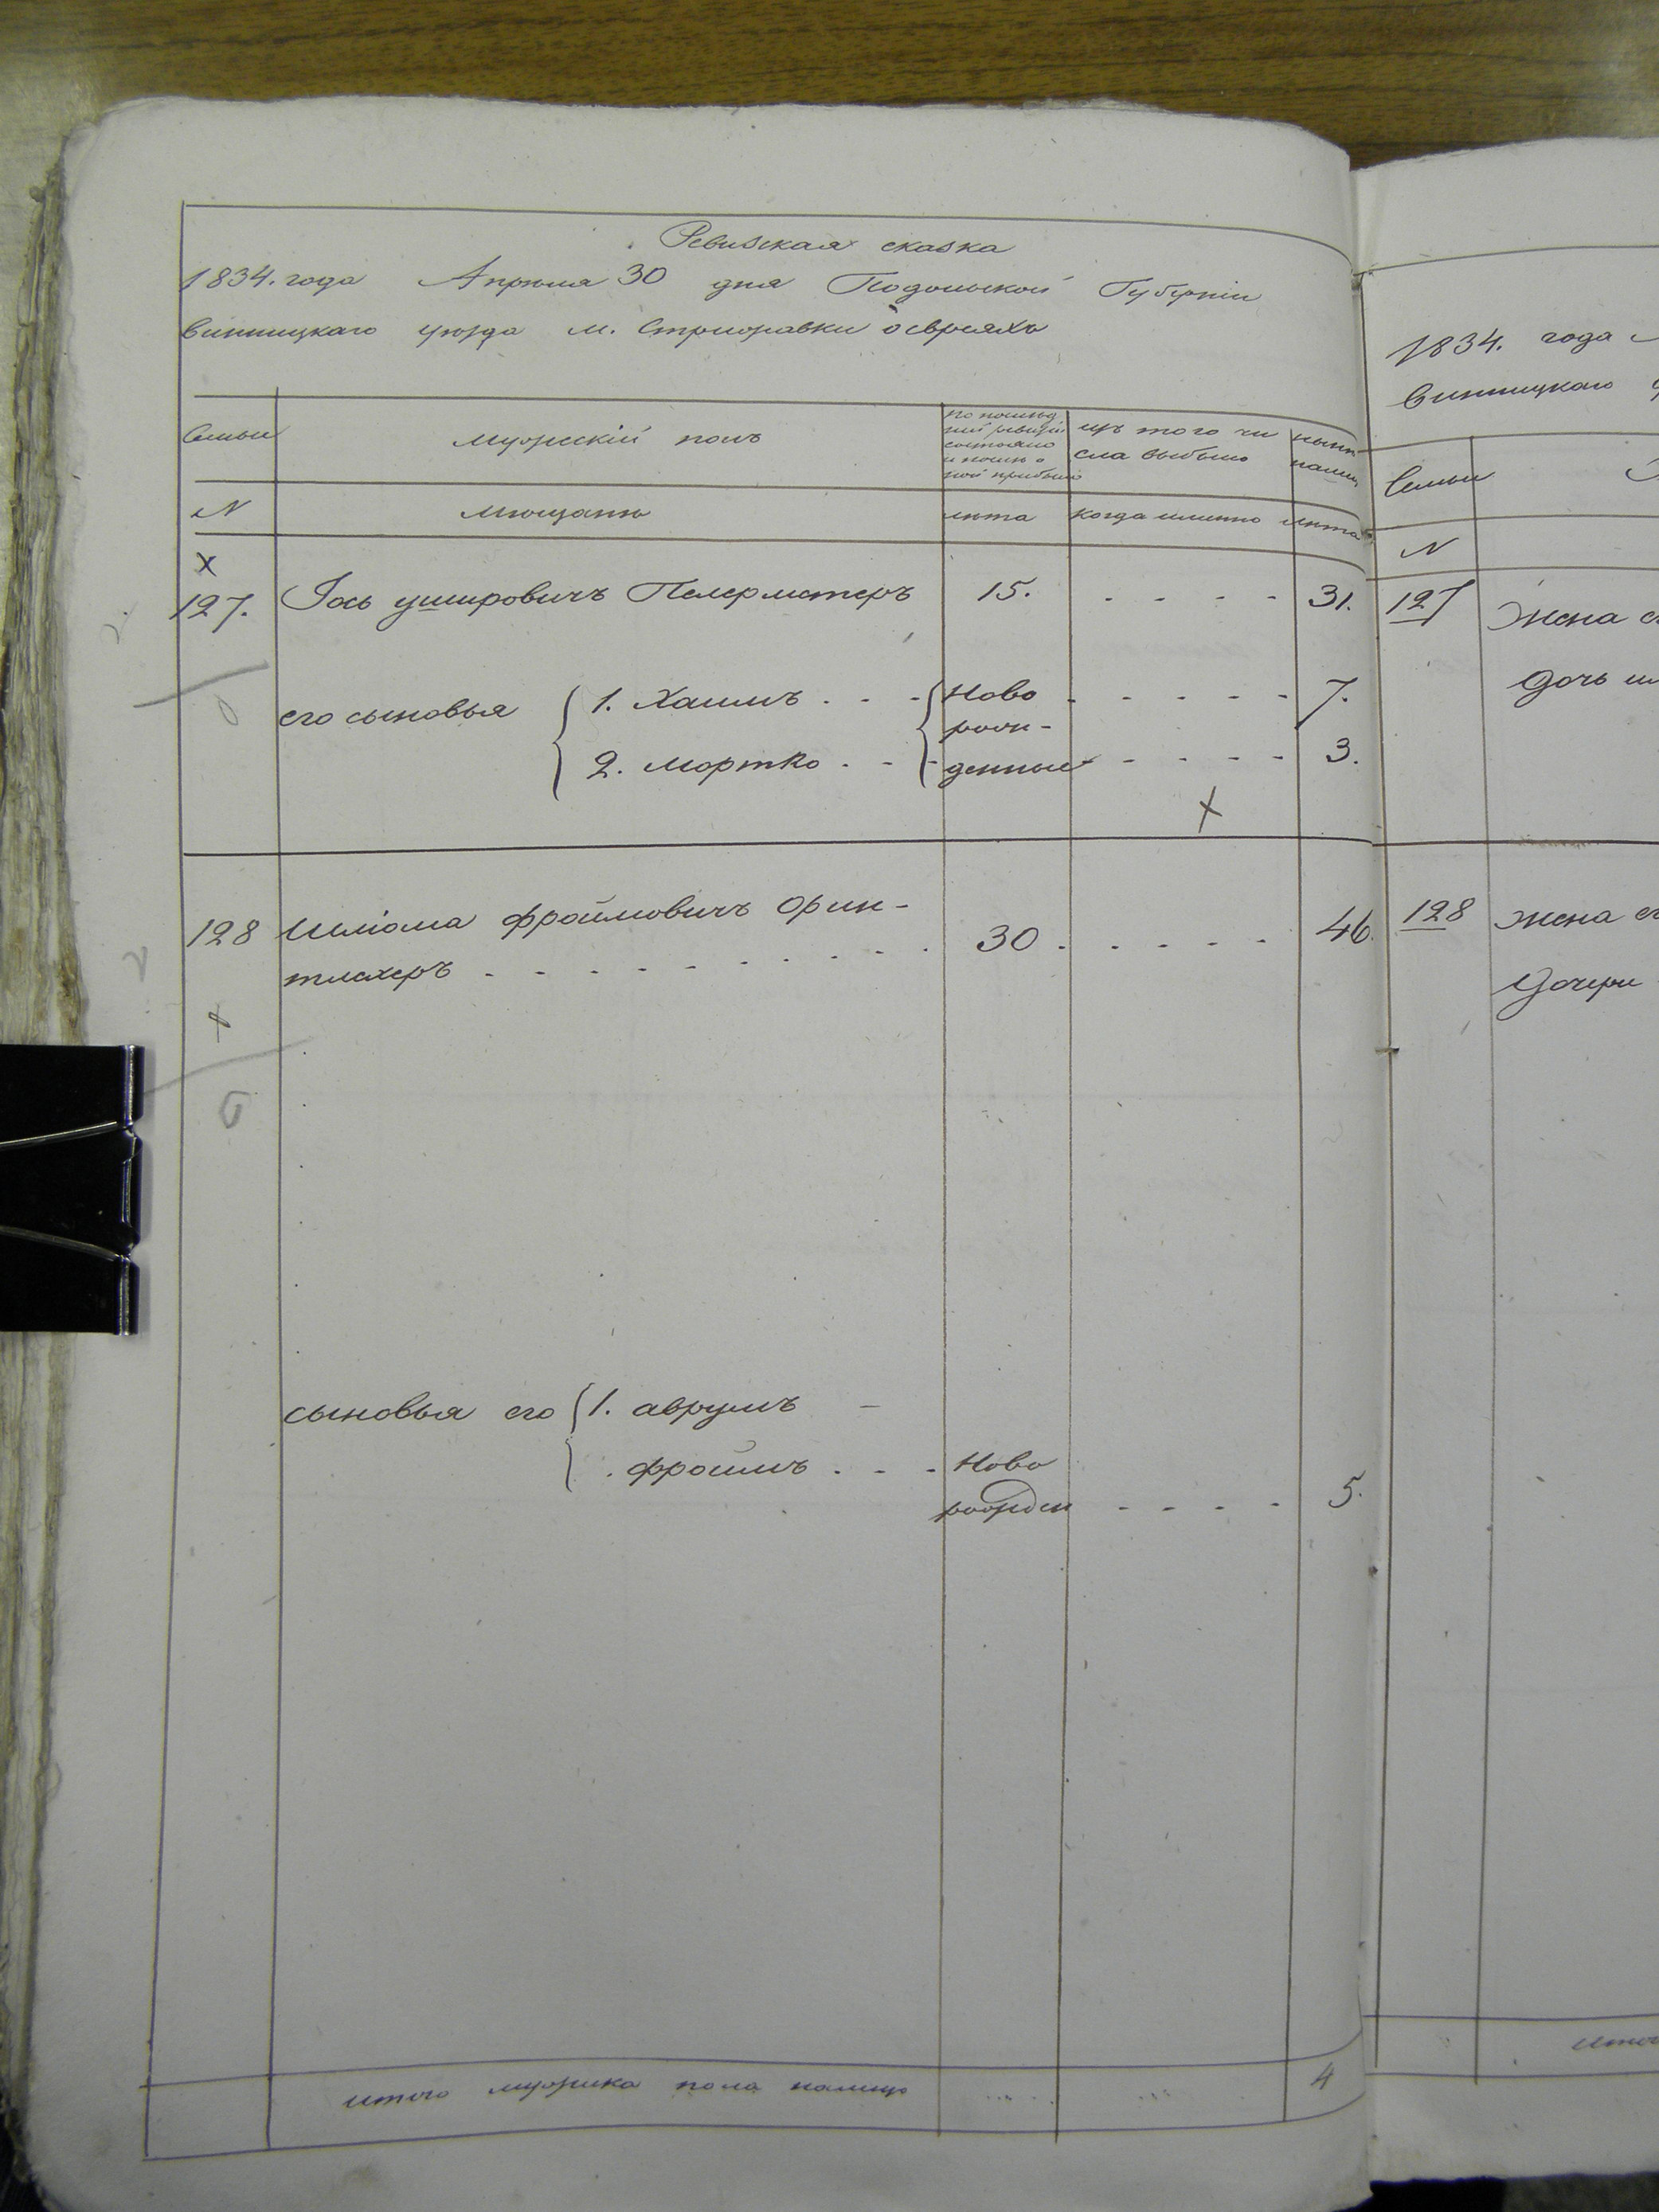 Ревизская сказка
1834. года Апреля 30 дня Подольской Губерніи
винницкаго уѣзда м. Стрижавки о евреяхъ
Семьи
мужескій полъ
по послѣд
ней ревизіи
состояло
и послѣ о
ной прибыло
изъ того чи
сла выбыло
нынѣ
налиц
N
мѣщанѣ
лѣта
когда имянно
лѣта
127.
Іось ушировичъ Пелерметеръ
15.
31.
его сыновья
1. Хаимъ
Ново
7.
рож-
2. мортко
денные
3.
128
Шліома фроймовичъ Орин-
тлехеръ
30
46.
сыновья его
1. аврумъ
фроимъ
Ново
рожден
5.
итого мужска пола налицо
4
1834. года
винницкаго
Семьи
N
127
Жена
Дочь
128
жена
Дочери